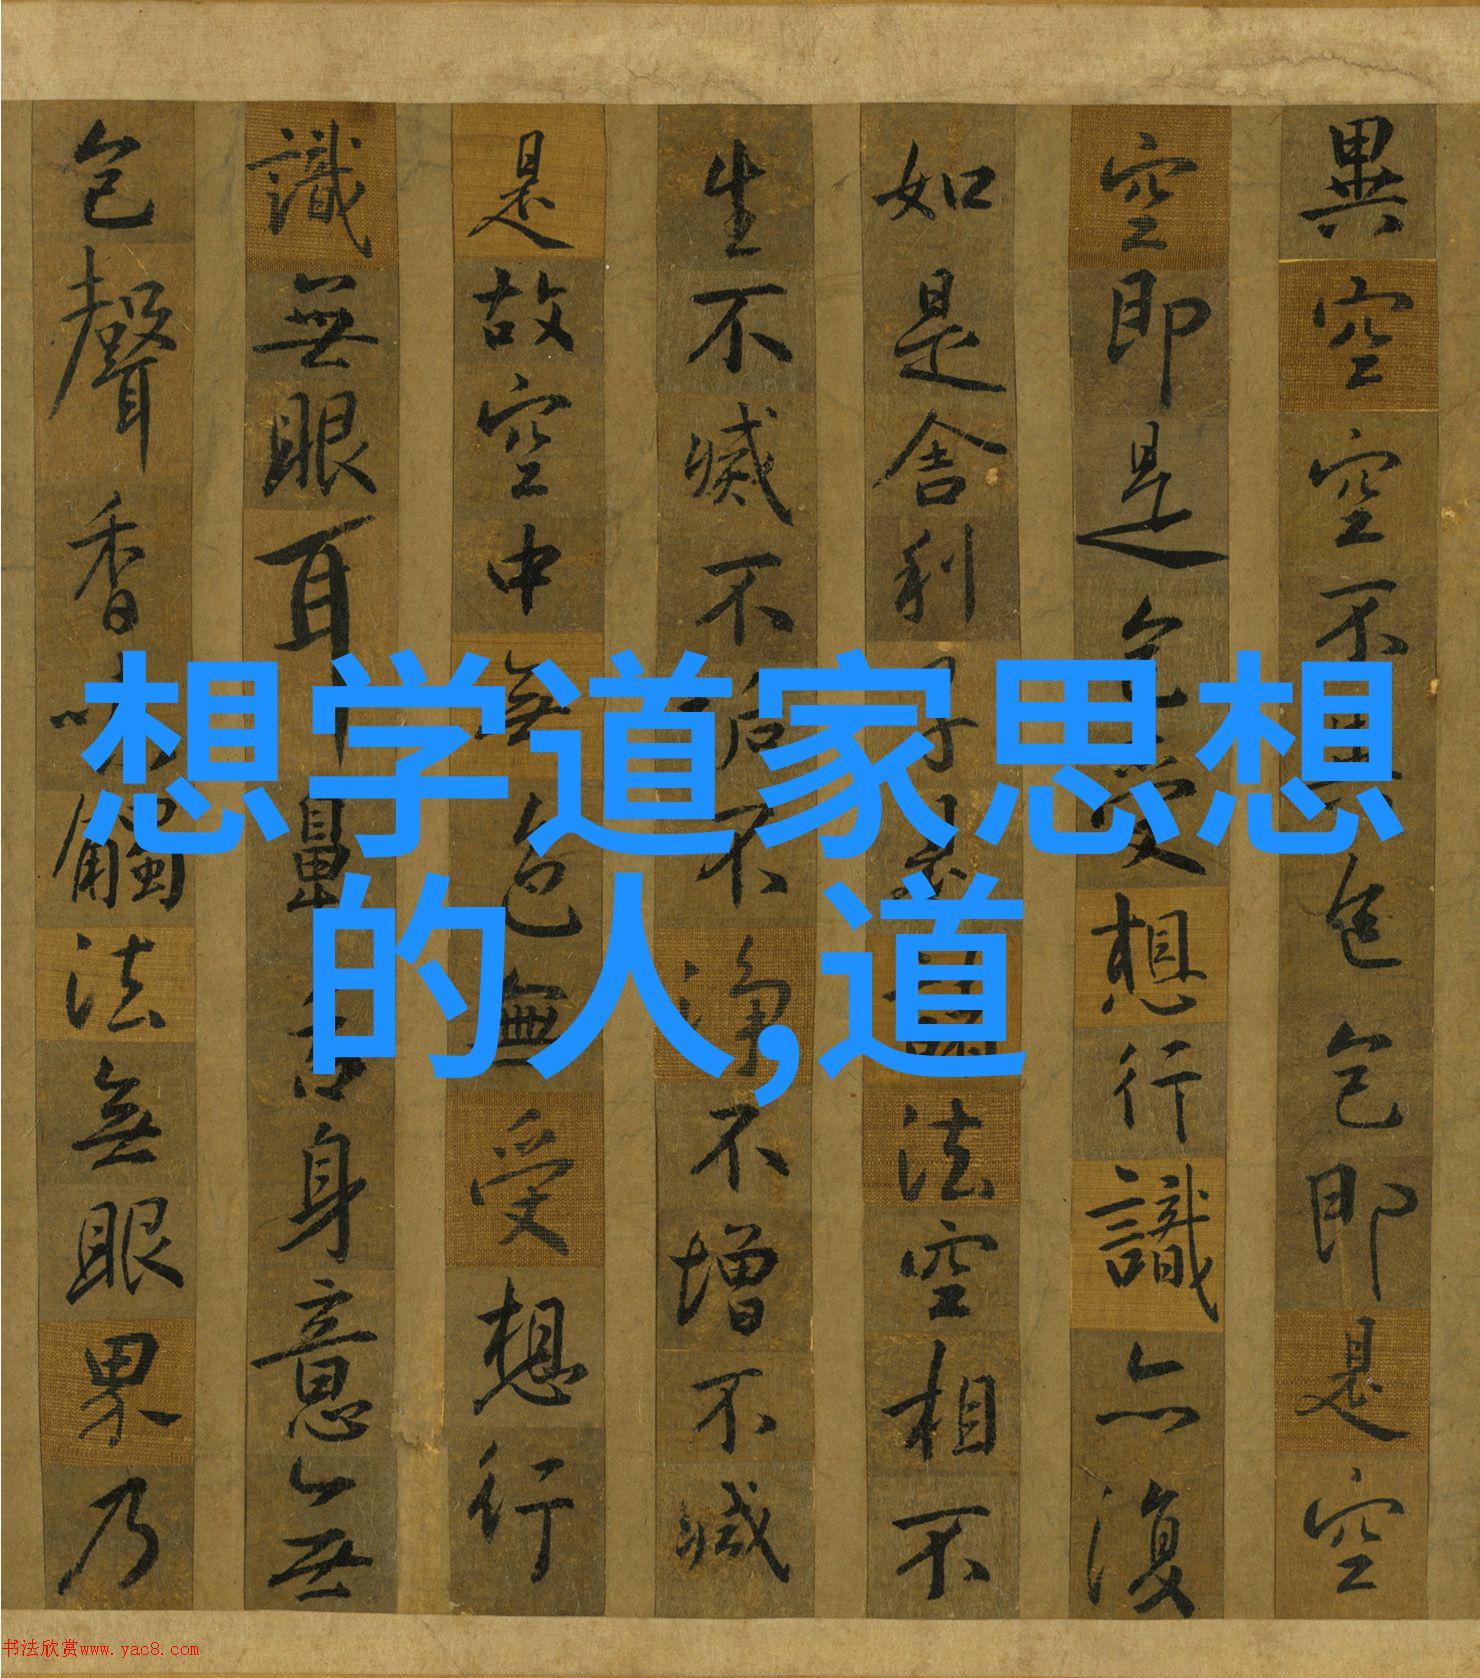 異空空不異色色即是空
空即是色受想行識亦復
如是舍利子是諸法空相不
生不滅不垢不淨不增不減
是故空中無色無受想行
識無眼耳鼻舌身意無
色聲香味觸法無眼界乃
想学道家思想
的人,道
书法欣赏www.yac8.com